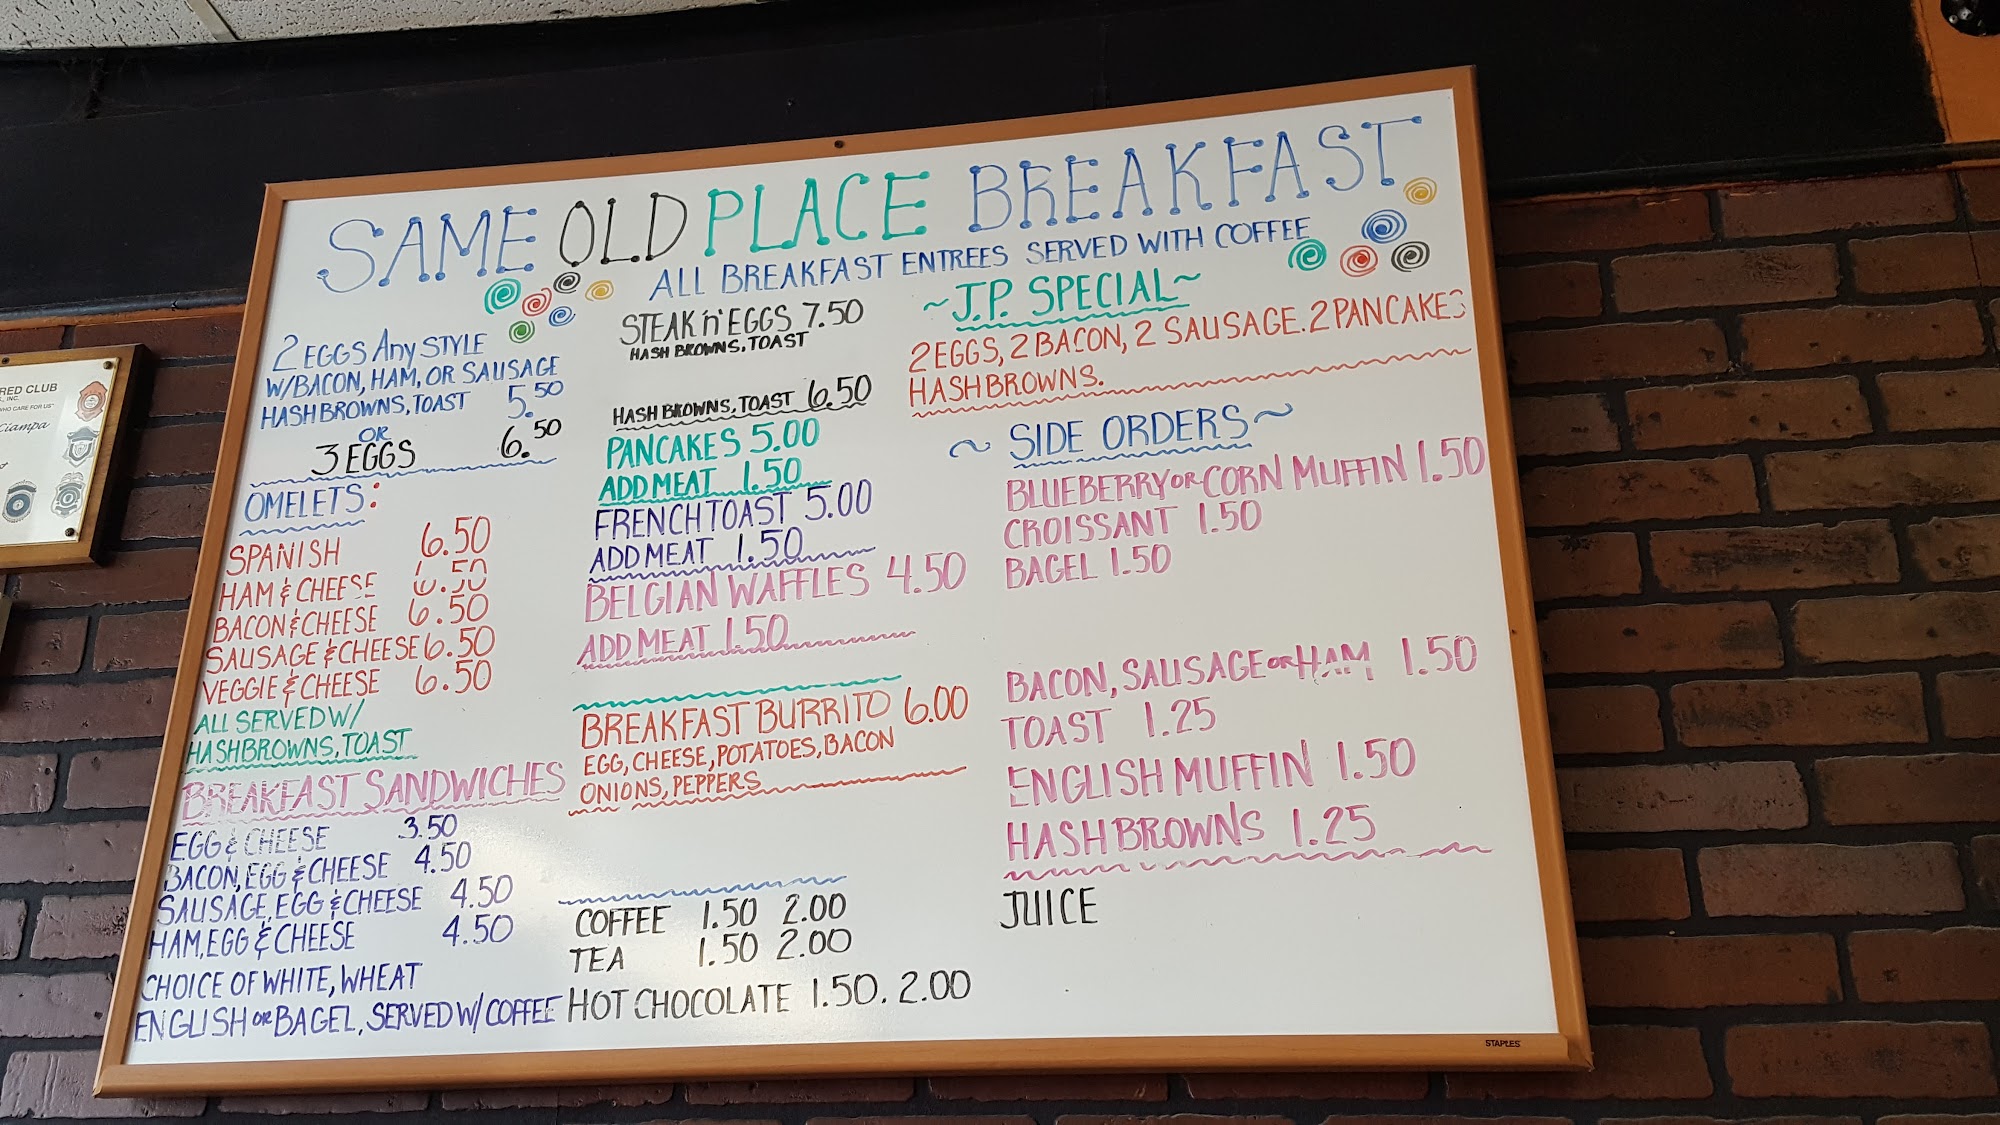 SAME OLD PLACE BREAKFAST
ALL BREAKFAST ENTREES SERVED WITH COFFEE
2 EGGS Any STYLE
W/BACON, HAM, OR SAUSAGE
HASHBROWNS, TOAST 5.50
OR
3 EGGS 6.50
OMELETS:
SPANISH 6.50
HAM & CHEESE 6.50
BACON & CHEESE 6.50
SAUSAGE & CHEESE 6.50
VEGGIE & CHEESE 6.50
ALL SERVED W/
HASHBROWNS, TOAST
BREAKFAST SANDWICHES
EGG & CHEESE 3.50
BACON, EGG & CHEESE 4.50
SAUSAGE, EGG & CHEESE 4.50
HAM, EGG & CHEESE 4.50
CHOICE OF WHITE, WHEAT
ENGLISH OR BAGEL, SERVED W/ COFFEE
STEAK 'n' EGGS 7.50
HASH BROWNS, TOAST
HASH BROWNS, TOAST 6.50
PANCAKES 5.00
ADD MEAT 1.50
FRENCH TOAST 5.00
ADD MEAT 1.50
BELGIAN WAFFLES 4.50
ADD MEAT 1.50
BREAKFAST BURRITO 6.00
EGG, CHEESE, POTATOES, BACON
ONIONS, PEPPERS
COFFEE 1.50 2.00
TEA 1.50 2.00
HOT CHOCOLATE 1.50. 2.00
~J.P. SPECIAL~
2 EGGS, 2 BACON, 2 SAUSAGE. 2 PANCAKES
HASHBROWNS.
~ SIDE ORDERS ~
BLUEBERRY OR CORN MUFFIN 1.50
CROISSANT 1.50
BAGEL 1.50
BACON, SAUSAGE OR HAM 1.50
TOAST 1.25
ENGLISH MUFFIN 1.50
HASH BROWNS 1.25
JUICE
STAPLES
RED CLUB
INC.
WHO CARE FOR US"
Ciampa